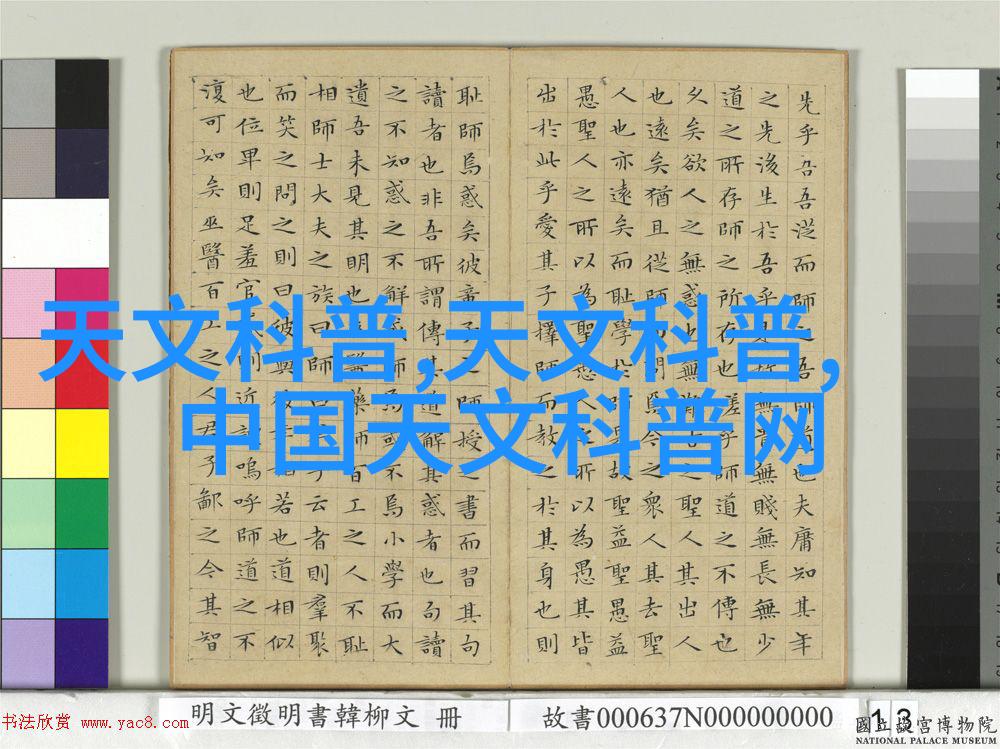 先乎吾吾從而師之吾師道也夫庸知其年
之先後生於吾乎是故無貴無賤無長無少
道之所存師之所存也嗟乎師道之不傳也
久矣欲人之無惑也古之聖人其出人
也遠矣猶且從師而問焉今之衆人其去聖
人也亦遠矣而耻學於師是故聖益聖愚益
愚聖人之所以為聖愚人之所以為愚其皆
出於此乎愛其子擇師而教之於其身也則
耻師焉惑矣彼童子之師授之書而習其句
讀者也非吾所謂傳其道解其惑者也句讀
之不知惑之不解或師焉或不焉小學而大
遺吾未見其明也醫樂師百工之人不耻
相師士大夫之族曰師曰子云者則羣聚
而笑之問之則曰彼與彼若也道相似
也位卑則足羞官則近嗚呼師道之不
復可知矣巫醫百工之人君子鄙之今其智
天文科普,天文科普,
中国天文科普网
明文徵明書韓柳文 冊
故書000637N000000000
13
书法欣赏 www.yac8.com
國立故宮博物院
NATIONAL PALACE MUSEUM